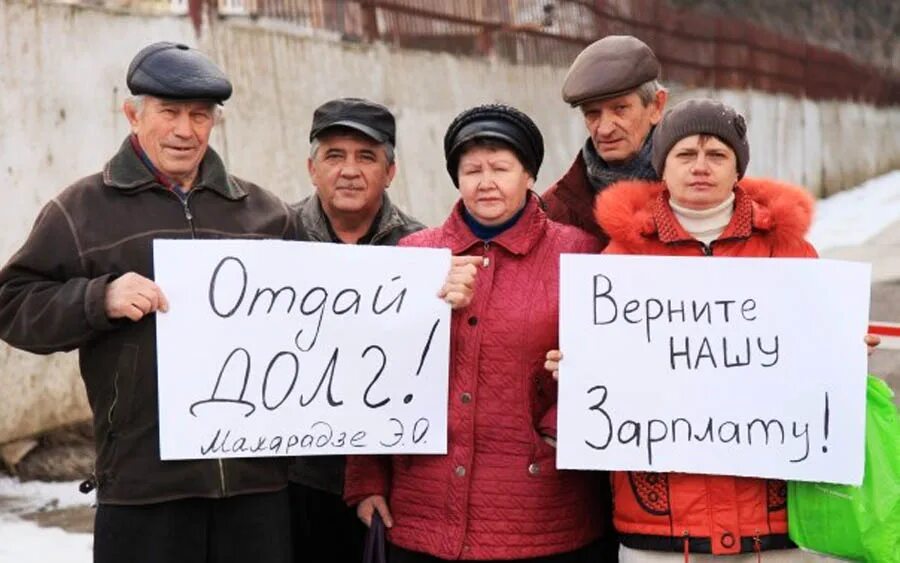 Отдай
ДОЛГ!
Махарадзе Э.О.
Верните
НАШУ
Зарплату!